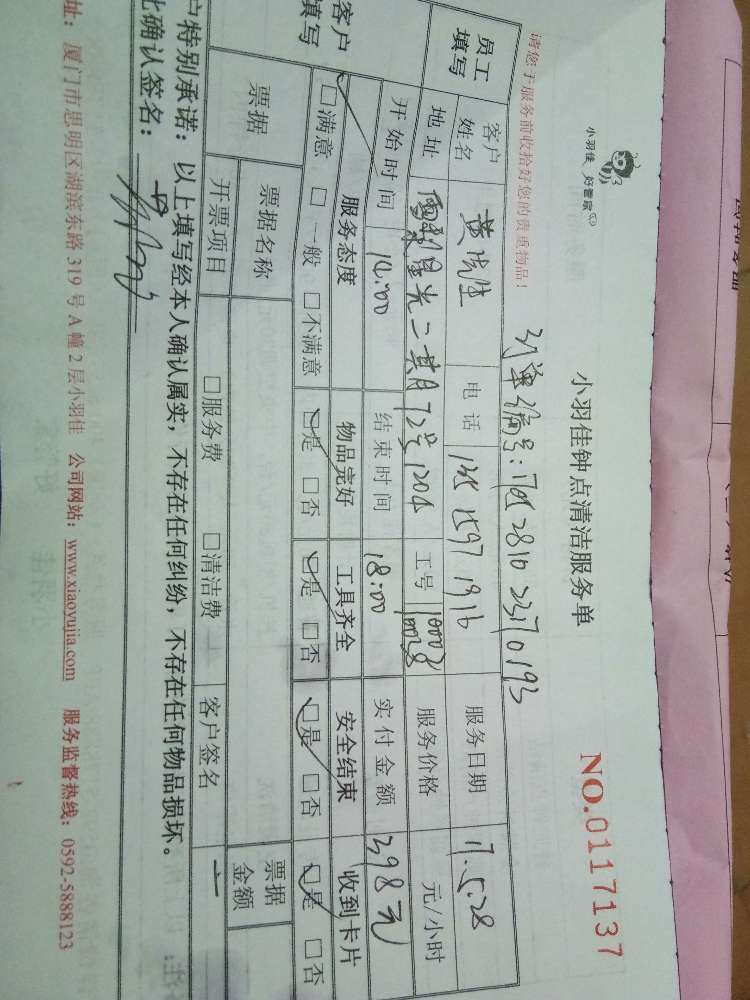 小羽佳 好管家
小羽佳钟点清洁服务单
NO.0117137
请您于服务前收拾好您的贵重物品!
员工填写
客户姓名 黄先生 电话 1597 1916 服务日期 17.5.28
地址 星光二期72号1204 工号 10008 服务价格 元/小时
开始时间 14:00 结束时间 18:00 实付金额 398元
客户填写
服务态度 物品完好 工具齐全 安全结束 收到卡片
□满意 □一般 □不满意 □是 □否 □是 □否 □是 □否 □是 □否
票据 票据名称 票据金额
开票项目 □服务费 □清洁费 客户签名
户特别承诺:以上填写经本人确认属实,不存在任何纠纷,不存在任何物品损坏。
此确认签名:
址:厦门市思明区湖滨东路319号A幢2层小羽佳 公司网站:www.xiaoyujia.com 服务监督热线:0592-5888123